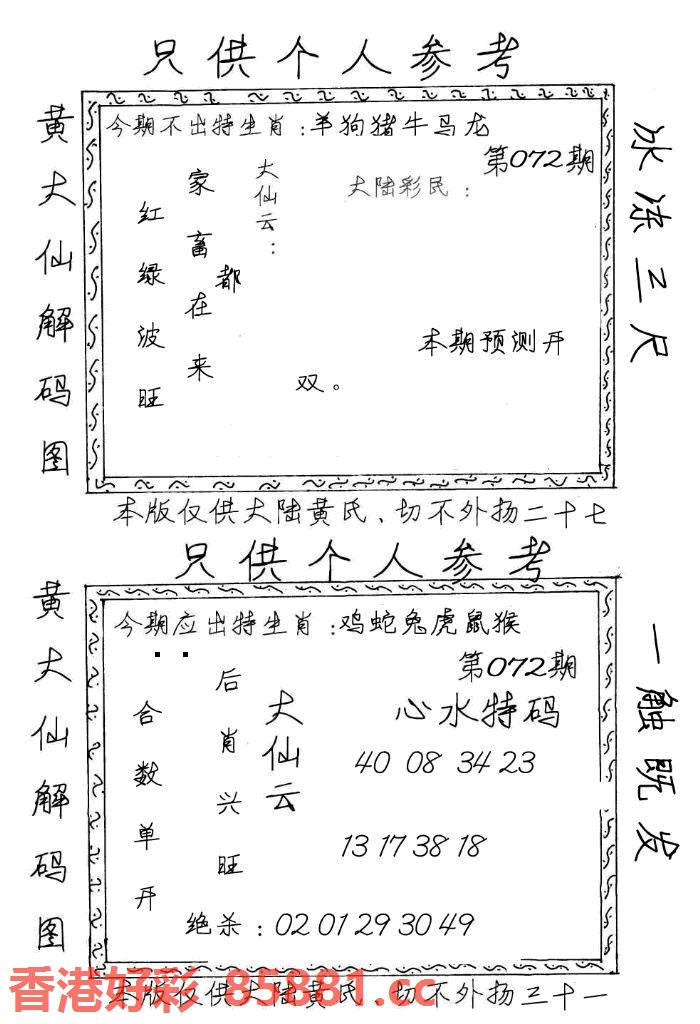 只供个人参考
黄大仙解码图
今期不出特生肖：羊狗猪牛马龙
第072期
大陆彩民：
大仙云：
家畜都在来
红绿波旺
本期预测开
双。
冰冻三尺
本版仅供大陆黄氏、切不外扬二十七
只供个人参考
黄大仙解码图
今期应出特生肖：鸡蛇兔虎鼠猴
第072期
心水特码
大仙云
后肖兴旺
合数单开
40 08 34 23
13 17 38 18
绝杀：02 01 29 30 49
一触既发
本版仅供大陆黄氏、切不外扬三十一
香港好彩 85881.cc